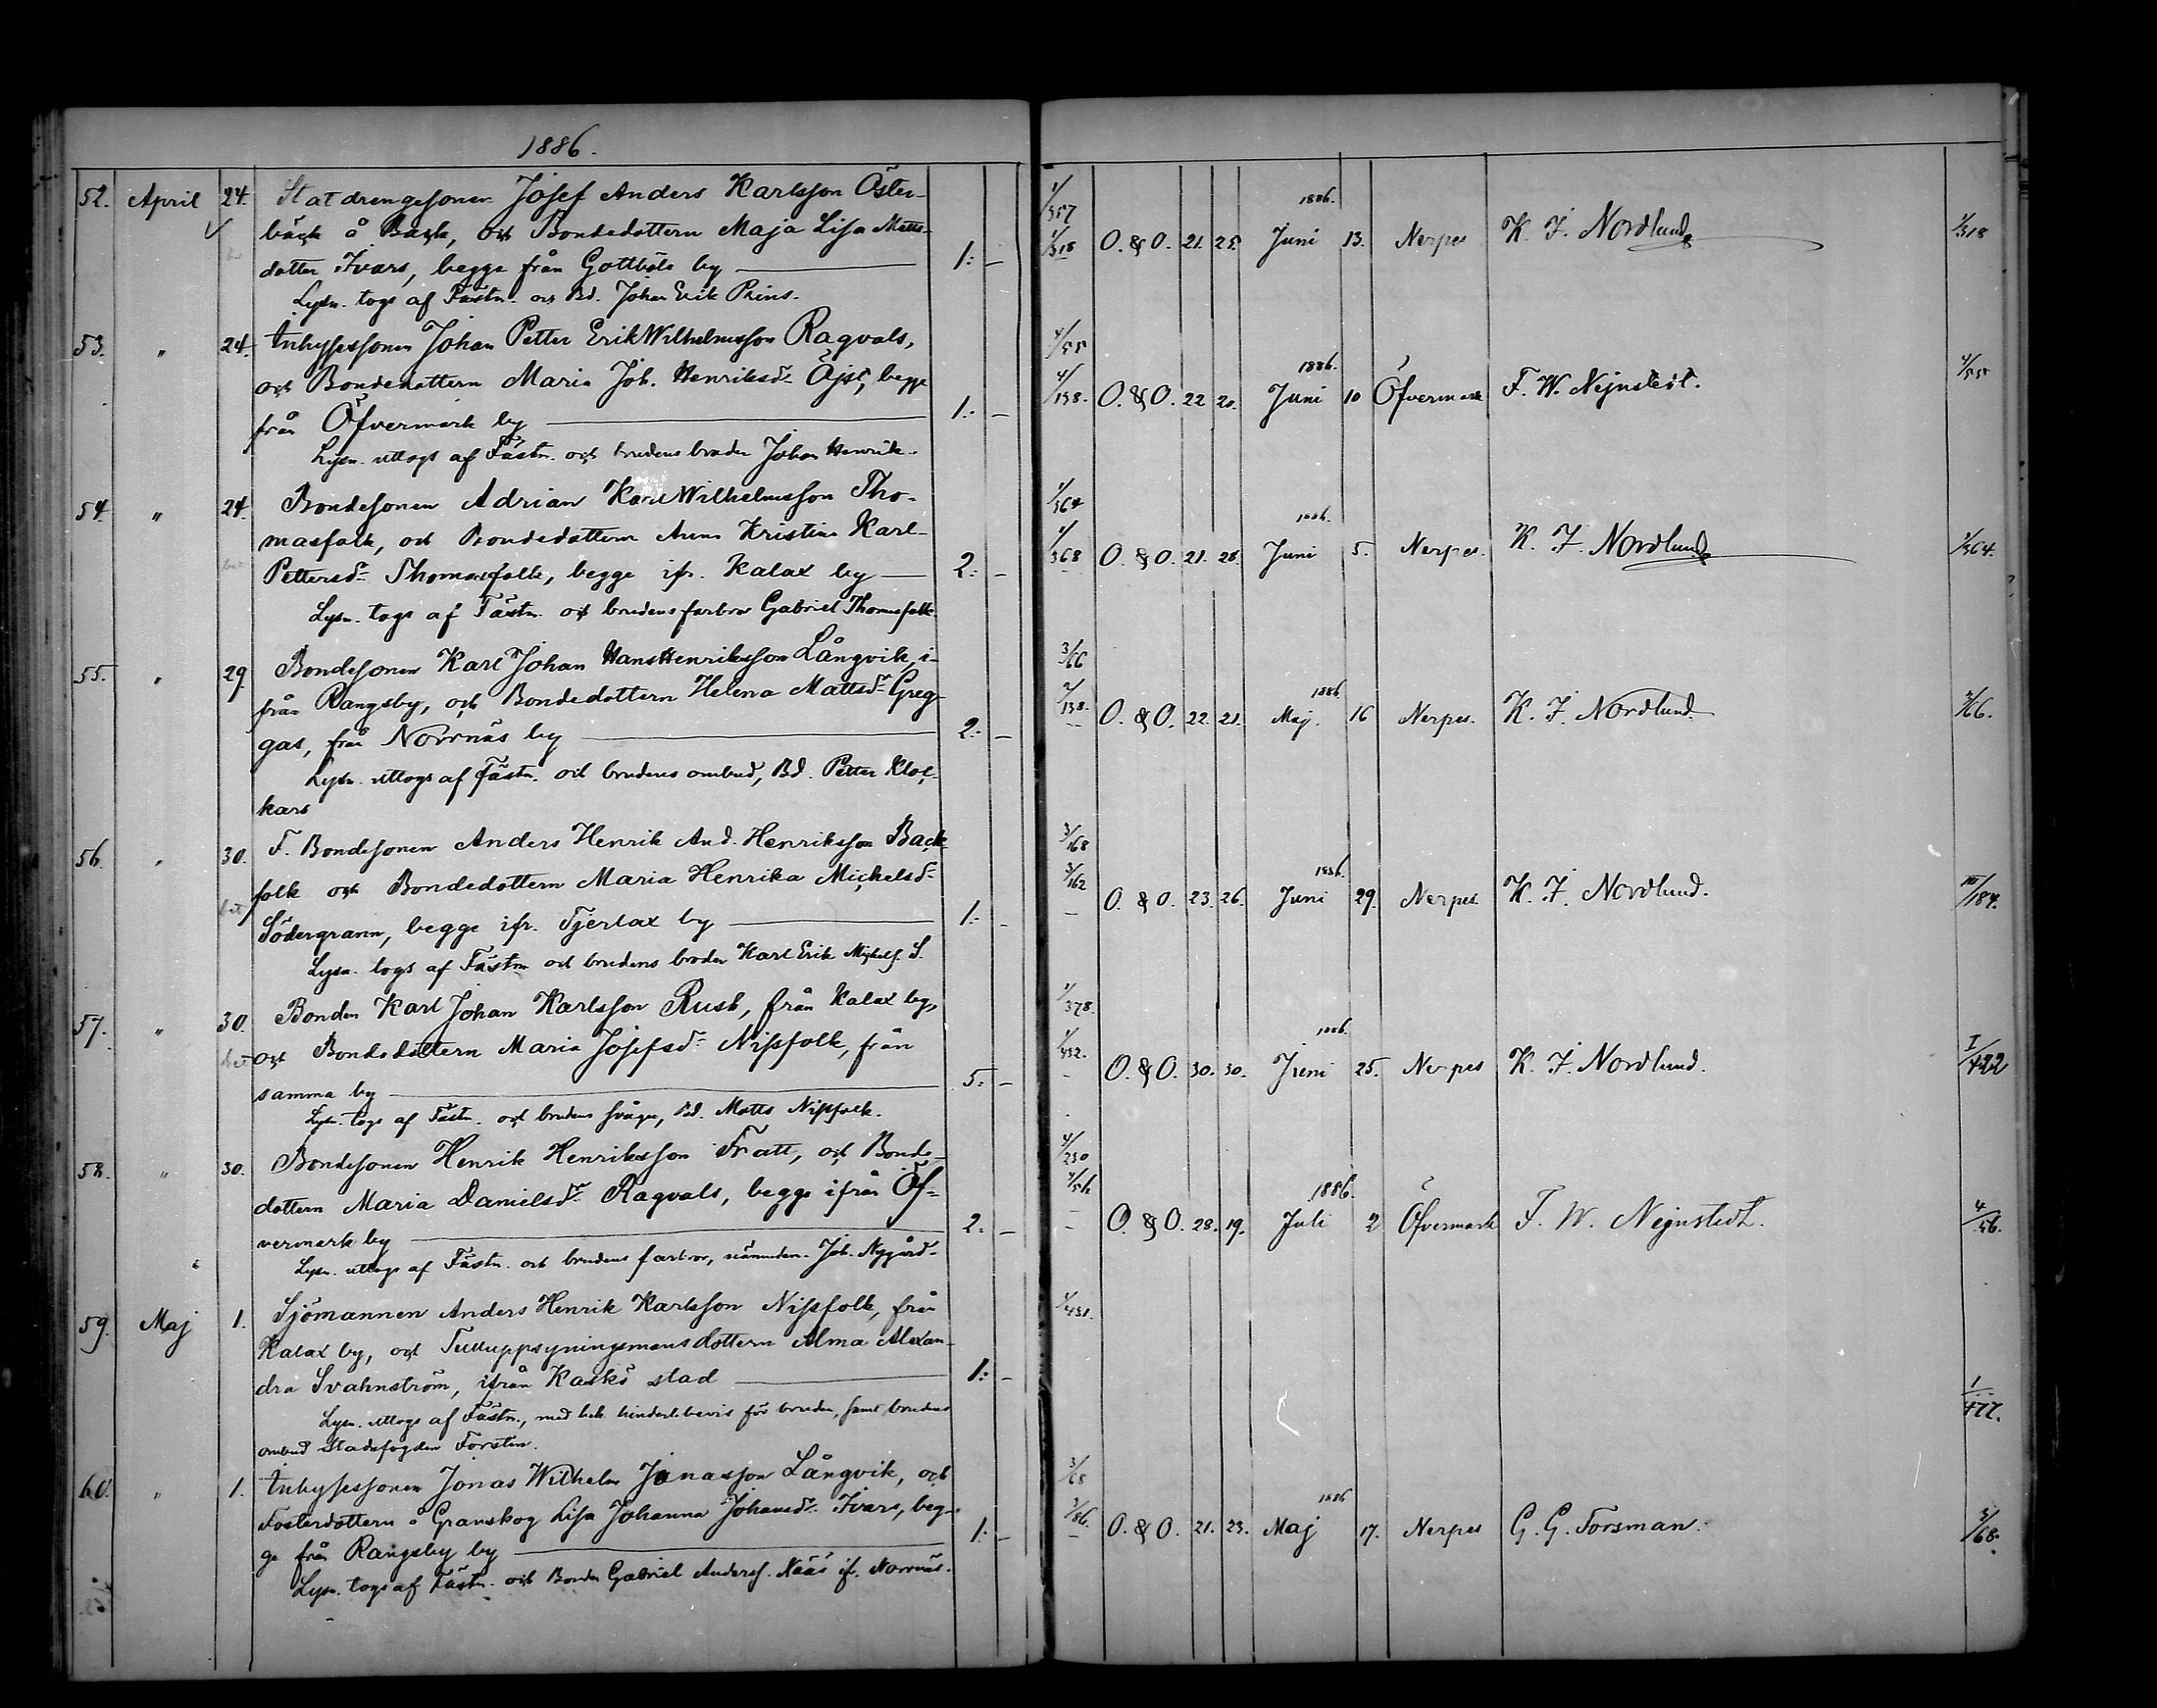 1886.
52. April 24. Statdrengesonen Josef Anders Karlsson Öster-
bäck å Back, och Bondedottern Maja Lisa Matts-
dotter Ivars, begge från Gottböle by 1:–
Lysn. togs af Fästm. och Bd. Johan Erik Prins.
1/357 1/318 O. & O. 21. 25. 1886. Juni 13. Nerpes K. J. Nordlund 1/318
53. " 24. Inhyssonen Johan Petter ErikWilhelmsson Ragvals,
och Bondedottern Maria Joh. Henriksdr Öjst, begge
från Öfvermark by 1:–
Lysn. uttogs af Fästm. och brudens broder Johan Henrik.
4/55 4/198. O. & O. 22 20. 1886. Juni 10 Öfvermark F. W. Nejnstedt. 4/55
54. " 24. Bondesonen Adrian KarlWilhelmsson Tho-
masfolk, och Bondedottern Anna Kristina Karl-
Pettersdr Thomasfolk, begge ifr. Kalax by 2:–
Lysn. togs af Fästm. och brudens farbror Gabriel Thomasfolk
1/364 1/368 O. & O. 21. 28. 1886. Juni 5. Nerpes. K. J. Nordlund 1/364.
55. " 29. Bondesonen Karl Johan HansHenriksson Långvik, i-
från Rangsby, och Bondedottern Helena Mattsdr Greg-
gas, från Norrnäs by 2:–
Lysn. uttogs af Fästm. och brudens ombud, Bd. Petter Kloc-
kars
3/66 2/138. O. & O. 22. 21. 1886 Maj. 16 Nerpes. K. J. Nordlund. 3/66.
56. " 30. F. Bondesonen Anders Henrik And. Henriksson Back-
folk och Bondedottern Maria Henrika Michelsdr
Södergrann, begge ifr. Tjerlax by 1:–
Lysn. togs af Fästm och brudens broder Karl Erik Michelss. S.
3/168 3/162 O. & O. 23. 26. 1886. Juni 29. Nerpes. K. J. Nordlund. III/184.
57. " 30. Bonden Karl Johan Karlsson Rusk, från Kalax by,
och Bondedottern Maria Josefsdr Nissfolk, från
samma by 5:–
Lysn. togs af Fästm. och brudens svåger, Bd. Matts Nissfolk.
1/378. 1/432. O. & O. 30. 30. 1886. Juni 25. Nerpes K. J. Nordlund. I/422
58. " 30. Bondesonen Henrik Henriksson Fratt, och Bonde-
dottern Maria Danielsdr Ragvals, begge ifrån Öf-
vermark by 2:–
Lysn. uttogs af Fästm. och brudens farbror, nämndem. Joh. Nygård.
4/230 4/56 O. & O. 28. 19. 1886. Juli 2 Öfvermark F. W. Nejnstedt. 4/56.
59. Maj 1. Sjömannen Anders Henrik Karlsson Nissfolk, från
Kalax by, och Tulluppsyningsmansdottern Alma Alexan-
dra Svahnström, ifrån Kaskö stad 1:–
Lysn. uttogs af Fästm., med hinderl.bevis för bruden, samt brudens
ombud Stadsfogden Forstén.
1/431. 1/477.
60. " 1. Inhyssonen Jonas Wilhelm Jonasson Långvik, och
Fosterdottern å Granskog Lisa Johanna Johansdr Ivars, beg-
ge från Rangsby by 1:–
Lysn. togs af Fästm. och Bonden Gabriel Anderss. Nääs if. Norrnäs.
3/68 3/86. O. & O. 21. 23. 1886 Maj 17. Nerpes G. G. Forsman. 3/68.